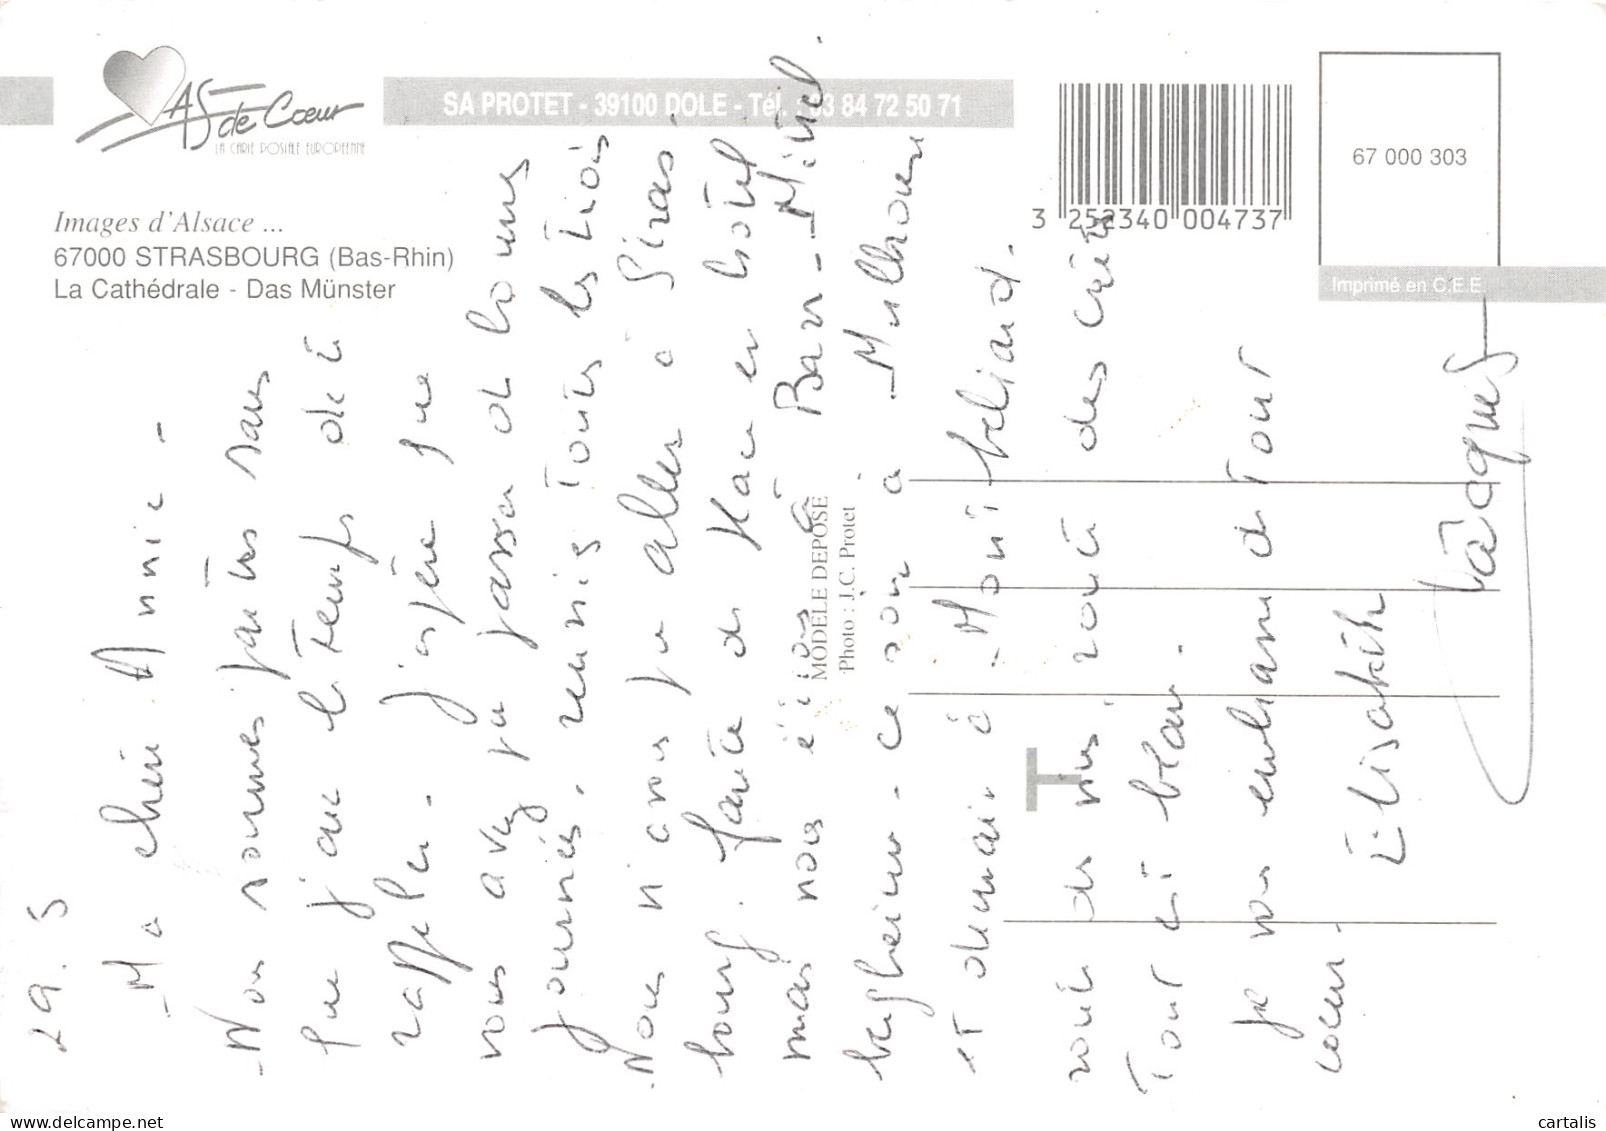 AS de Cœur
LA CARTE POSTALE EUROPÉENNE
SA PROTET - 39100 DOLE - Tél. : 03 84 72 50 71
3 252340 004737
67 000 303
Imprimé en C.E.E.
Images d'Alsace ...
67000 STRASBOURG (Bas-Rhin)
La Cathédrale - Das Münster
MODÈLE DÉPOSÉ
Photo : J.C. Protet
29. 5
Ma chère Annie -
Nous sommes partis sans
que j'aie le temps de te
rappeler. J'espère que
vous avez pu passer de bonnes
journées, réunis toutes les trois
Nous n'avons pu aller à Stras
bourg, faute de place en hôtel
mais nous étions à Bar - Mitzel.
bergheim - ce soir à Mulhouse
et demain à Montbeliard.
route des vins, route des crêtes
Tout est beau.
Je vous embrasse de tout
coeur.
Elisabeth
Jacques